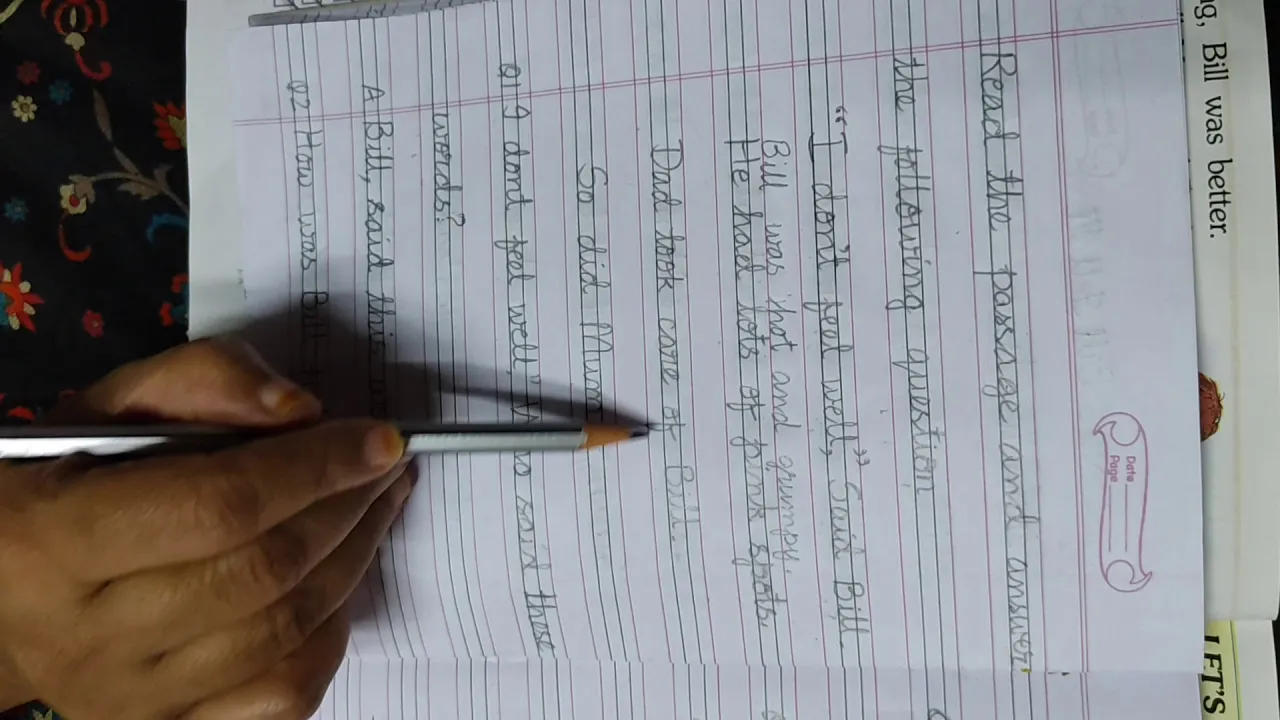 ng, Bill was better.
LET'S
Date
Page
Read the passage and answer
the following question
"I don't feel well," Said Bill.
Bill was hot and grumpy.
He had lots of pink spots.
Dad took care of Bill.
So did Mum
Q1 I dont feel well," who said those
words?
A Bill, said this
Q2 How was Bill